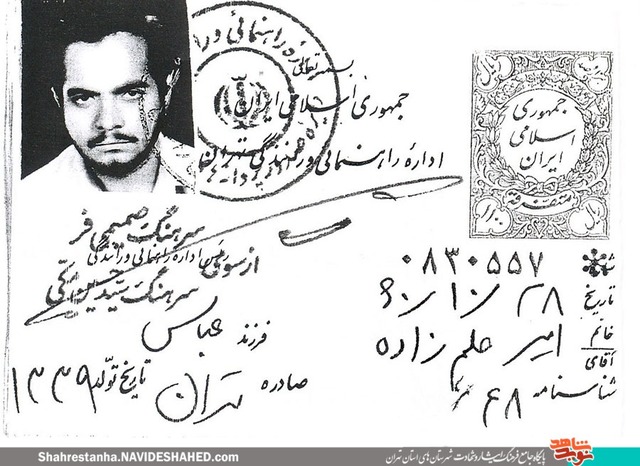 بسمه تعالی
جمهوری اسلامی ایران
اداره راهنمائی و رانندگی تهران
جمهوری
اسلامی
ایران
متفرقه
شماره ۰۸۳۰۵۵۷
تاریخ ۶۰/۱۰/۲۸
خانم
آقای
امیر علم زاده
شناسنامه ۶۶۸
فرزند عباس
صادره تهران
تاریخ تولد ۱۳۳۹
سرهنگ صمیمی فر
از سوی رئیس اداره راهنمائی و رانندگی
سرهنگ سید حسین
Shahrestanha.NAVIDESHAHED.com
پایگاه جامع فرهنگ ایثار و شهادت شهرستان های استان تهران
نوید شاهد